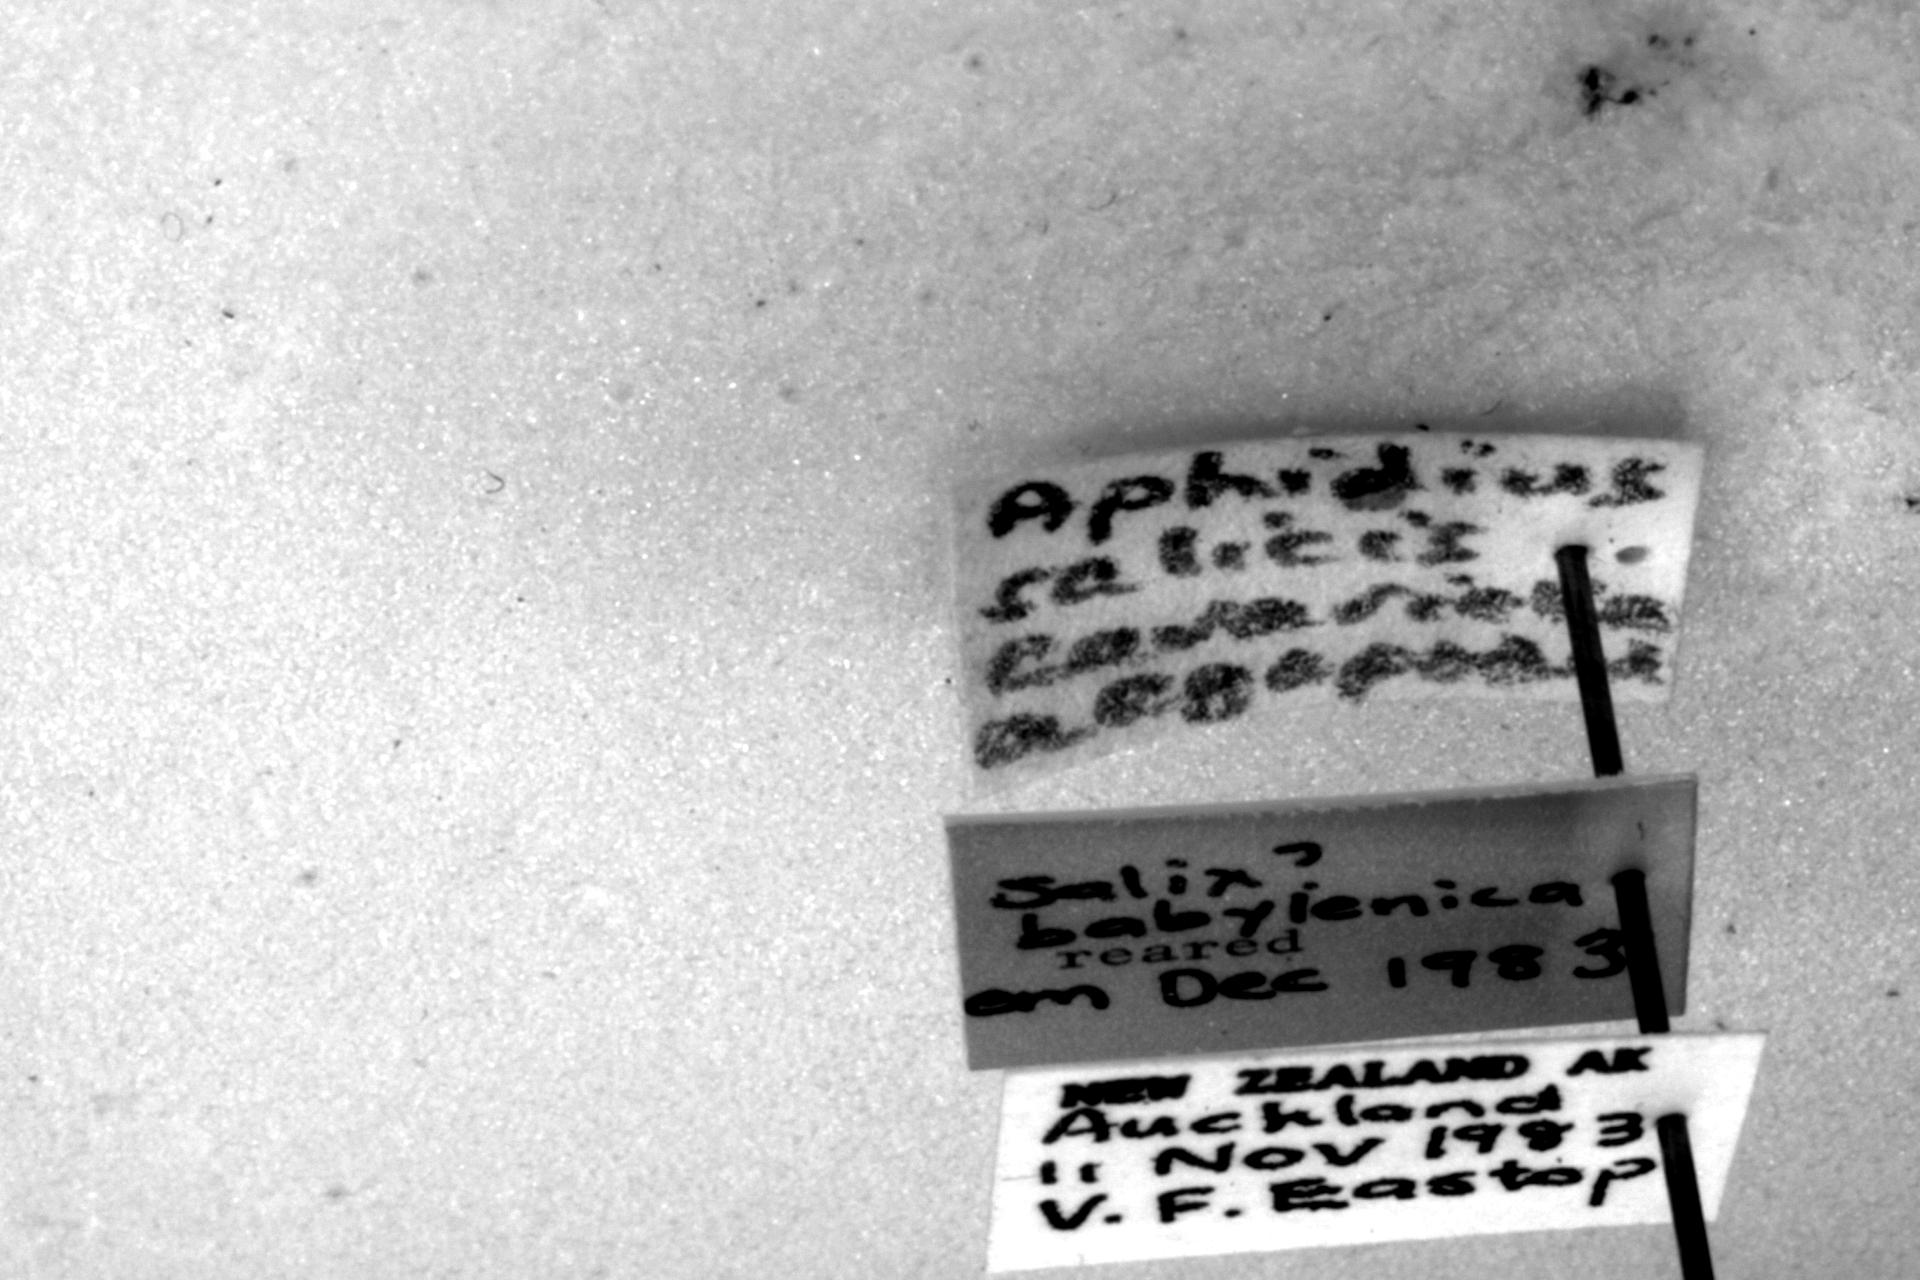 Aphidius
salicis
Cavariella
aegopodii
Salix?
babylonica
reared
em Dec 1983
NEW ZEALAND AK
Auckland
11 NOV 1983
V. F. Eastop